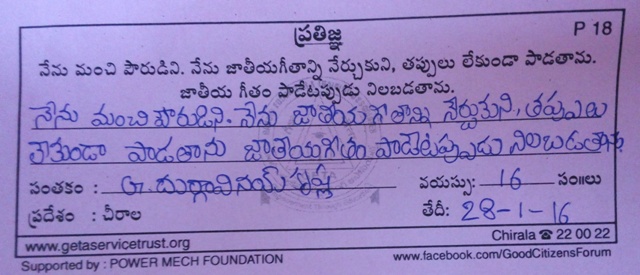 ప్రతిజ్ఞ
P 18
నేను మంచి పౌరుడిని. నేను జాతీయగీతాన్ని నేర్చుకుని, తప్పులు లేకుండా పాడతాను.
జాతీయ గీతం పాడేటప్పుడు నిలబడతాను.
నేను మంచి పౌరుడిని. నేను జాతీయగీతాన్ని నేర్చుకుని, తప్పులు
లేకుండా పాడతాను జాతీయగీతం పాడేటప్పుడు నిలబడతాను.
సంతకం : దుర్గావినయ్ కృష్ణ వయస్సు: 16 సం॥లు
ప్రదేశం : చీరాల తేదీ: 28-1-16
www.getaservicetrust.org Chirala ☎ 22 00 22
Supported by : POWER MECH FOUNDATION www.facebook.com/GoodCitizensForum